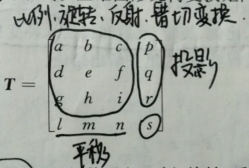 比例,旋转,反射,错切变换.
a b c p
d e f q
T =
g h i r
l m n s
投影
平移